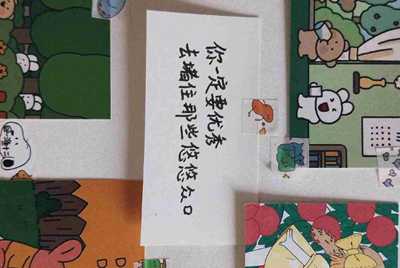 你一定要优秀
去堵住那些悠悠众口